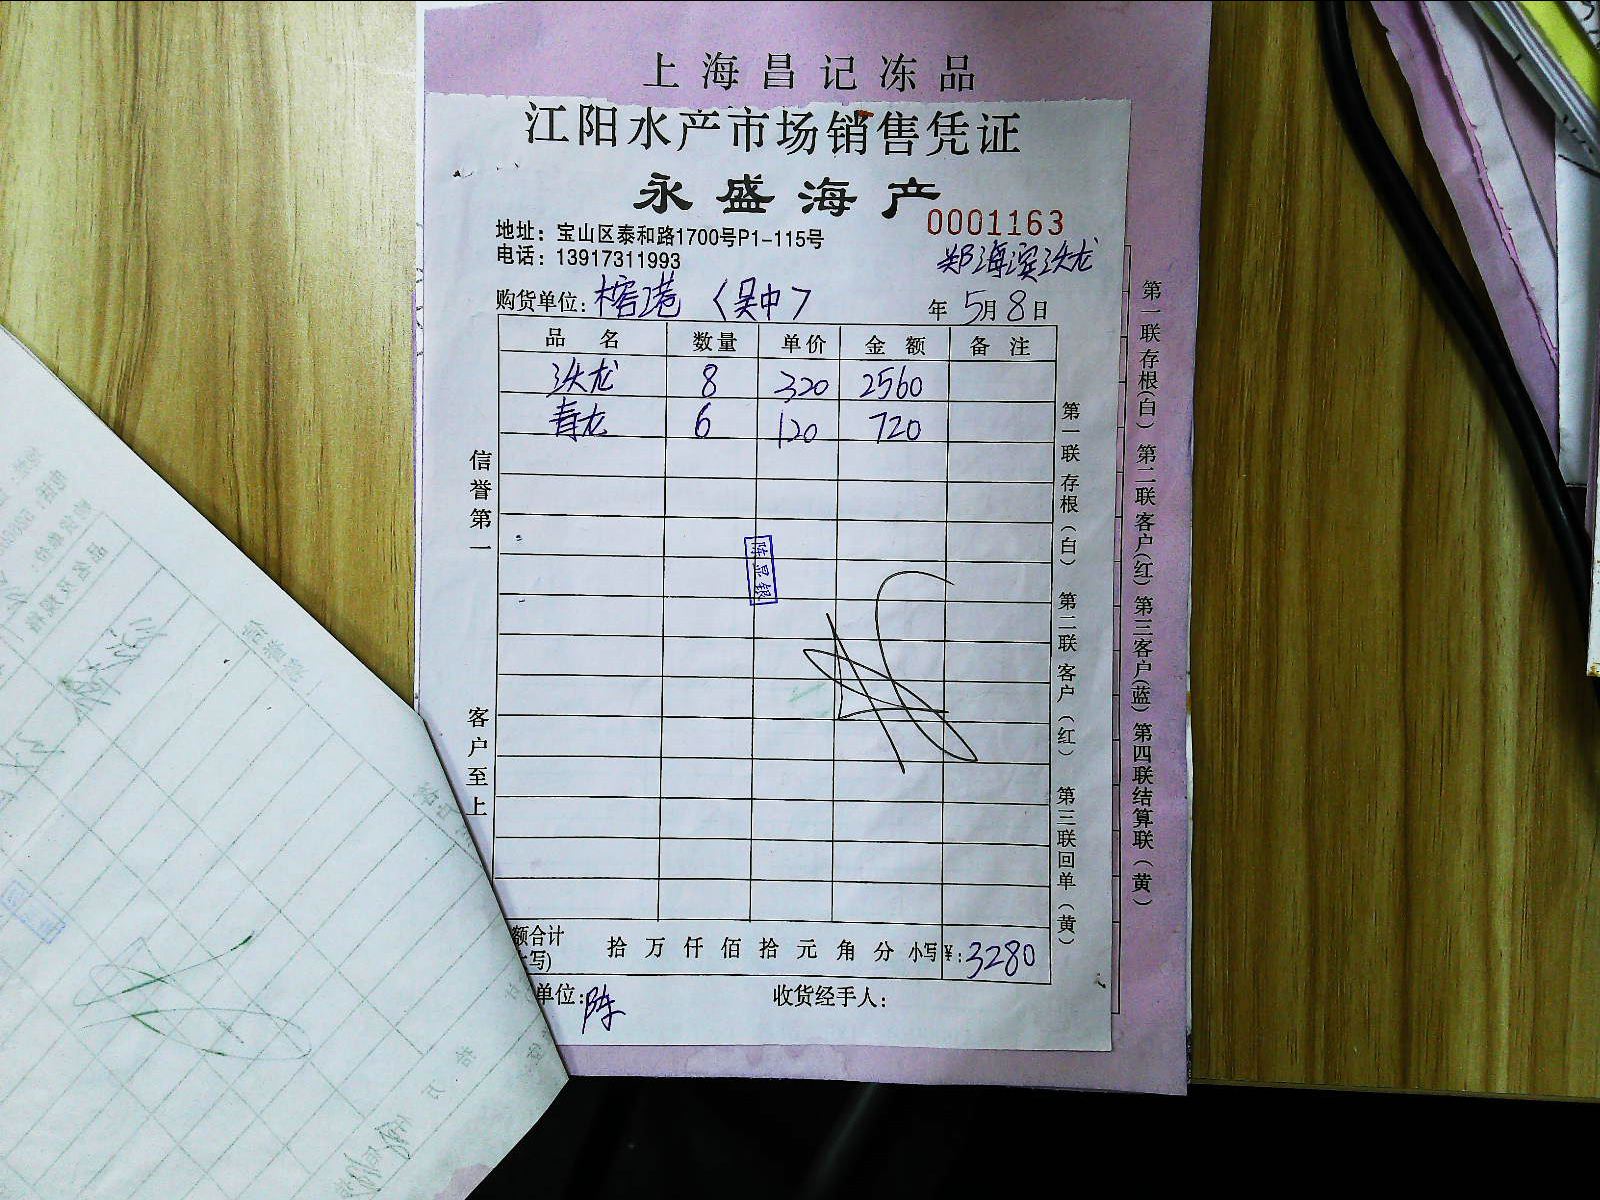 上海昌记冻品
江阳水产市场销售凭证
永盛海产
0001163
地址：宝山区泰和路1700号P1-115号
电话：13917311993
郑海滨沃龙
购货单位：榕港〈吴中〉 年5月8日
品 名 数量 单价 金 额 备 注
沃龙 8 320 2560
青龙 6 120 720
信誉第一
客户至上
陈显银
第一联存根(白) 第二联 客户(红) 第三联回单(黄)
第一联存根(白) 第二联客户(红) 第三客户(蓝) 第四联结算联(黄)
额合计 拾 万 仟 佰 拾 元 角 分 小写¥:3280
写)
单位:陈 收货经手人: